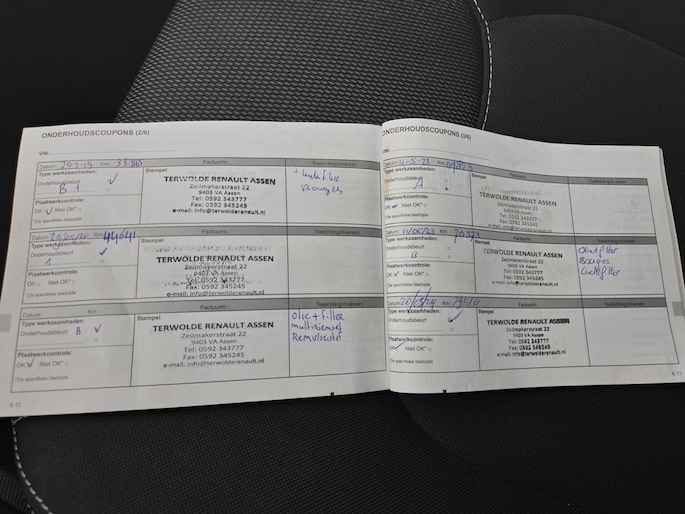 ONDERHOUDSCOUPONS (2/6)
VIN:
Datum: 20-5-19 Km: 33.865
Factuurnr.:
Toelichting/diversen:
Type werkzaamheden:
Onderhoudsbeurt
B +
Plaatwerkcontrole:
OK Niet OK*
*Zie specifieke bladzijde
Stempel
TERWOLDE RENAULT ASSEN
Zeilmakerstraat 22
9403 VA Assen
Tel: 0592 343777
Fax: 0592 345245
e-mail: info@terwolderenault.nl
+ luchtfilter
Bougies
Km: 44641
Factuurnr.:
Toelichting/diversen:
Type werkzaamheden:
Onderhoudsbeurt
A
Plaatwerkcontrole:
OK Niet OK*
*Zie specifieke bladzijde
Stempel
TERWOLDE RENAULT ASSEN
Zeilmakerstraat 22
9403 VA Assen
Tel: 0592 343777
Fax: 0592 345245
e-mail: info@terwolderenault.nl
Datum: Km:
Factuurnr.:
Toelichting/diversen:
Type werkzaamheden:
Onderhoudsbeurt B
Plaatwerkcontrole:
OK Niet OK*
*Zie specifieke bladzijde
Stempel
TERWOLDE RENAULT ASSEN
Zeilmakerstraat 22
9403 VA Assen
Tel: 0592 343777
Fax: 0592 345245
e-mail: info@terwolderenault.nl
Olie + Filter
multiriemset
Remvloeistof
6.10
ONDERHOUDSCOUPONS (3/6)
VIN:
Datum: 4-5-22 Km:
Factuurnr.:
Toelichting/diversen:
Type werkzaamheden:
Onderhoudsbeurt
A
Plaatwerkcontrole:
OK Niet OK*
*Zie specifieke bladzijde
Stempel
TERWOLDE RENAULT ASSEN
Zeilmakerstraat 22
9403 VA Assen
Tel: 0592 343777
Fax: 0592 345245
e-mail: info@terwolderenault.nl
Datum: Km:
Factuurnr.:
Toelichting/diversen:
Type werkzaamheden:
Onderhoudsbeurt
B
Plaatwerkcontrole:
OK Niet OK*
*Zie specifieke bladzijde
Stempel
TERWOLDE RENAULT ASSEN
Zeilmakerstraat 22
9403 VA Assen
Tel: 0592 343777
Fax: 0592 345245
e-mail: info@terwolderenault.nl
Oliefilter
Bougies
Luchtfilter
Km:
Factuurnr.:
Toelichting/diversen:
Type werkzaamheden:
Onderhoudsbeurt
Plaatwerkcontrole:
OK Niet OK*
*Zie specifieke bladzijde
Stempel
TERWOLDE RENAULT ASSEN
Zeilmakerstraat 22
9403 VA Assen
Tel: 0592 343777
Fax: 0592 345245
e-mail: info@terwolderenault.nl
6.11